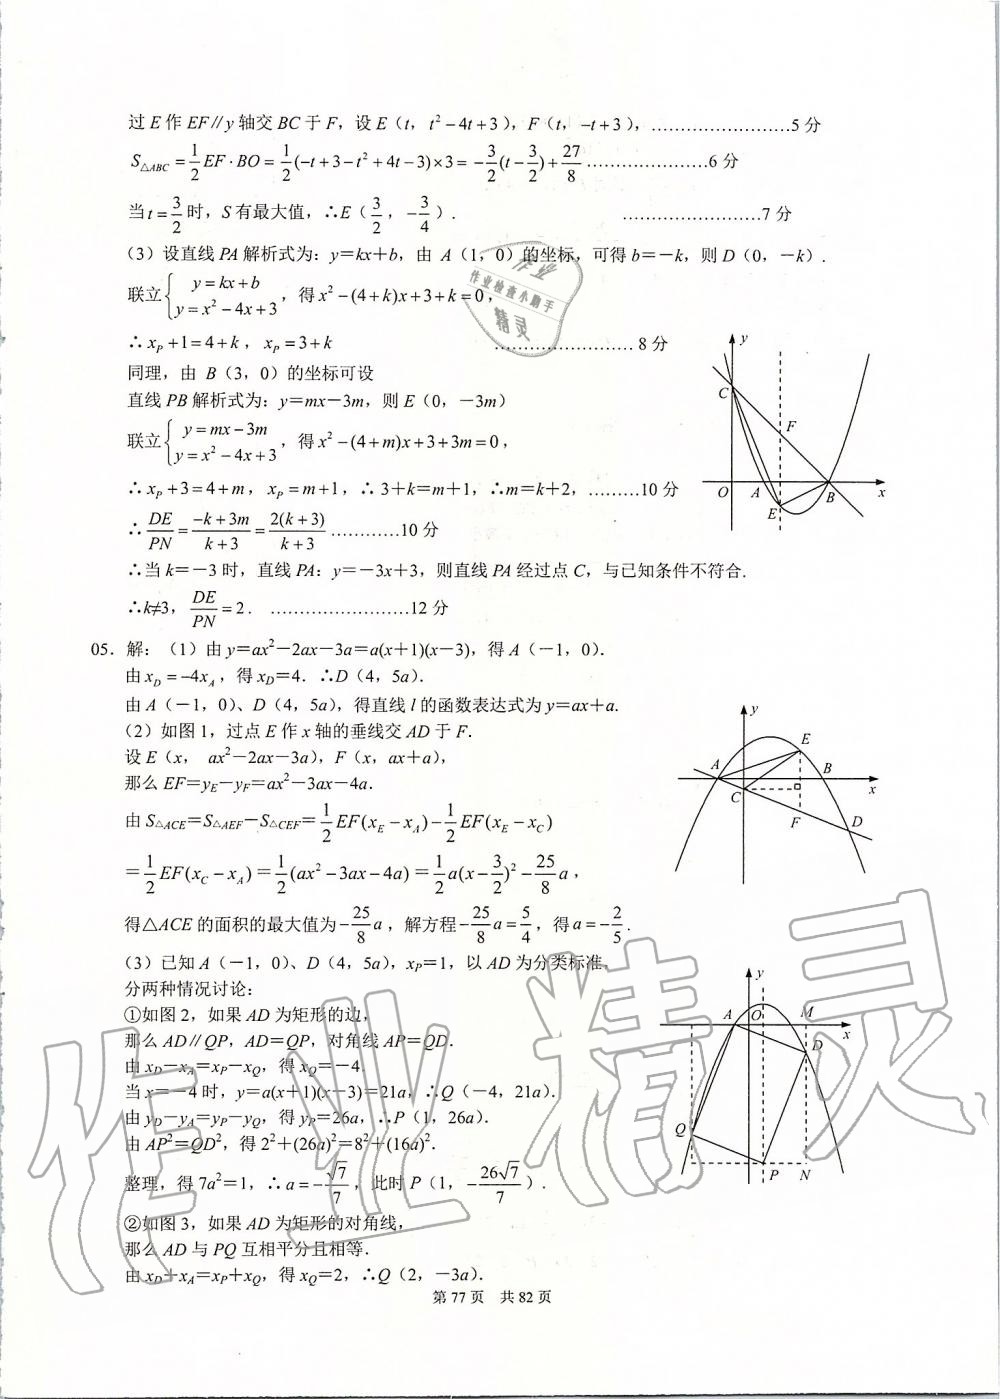 过E作EF∥y轴交BC于F，设E（t，t²－4t+3），F（t，－t+3），……………………5分
S△ABC=1/2EF·BO=1/2(－t+3－t²+4t－3)×3=－3/2(t－3/2)+27/8…………………6分
当t=3/2时，S有最大值，∴E（3/2，－3/4）. ……………………7分
（3）设直线PA解析式为：y=kx+b，由 A（1，0）的坐标，可得b=－k，则D（0，－k）.
联立{y=kx+b
y=x²－4x+3，得x²－(4+k)x+3+k=0，
∴xP+1=4+k，xP=3+k ……………………8分
同理，由 B（3，0）的坐标可设
直线PB解析式为：y=mx－3m，则E（0，－3m）
联立{y=mx－3m
y=x²－4x+3，得x²－(4+m)x+3+3m=0，
∴xP+3=4+m，xP=m+1，∴3+k=m+1，∴m=k+2，………10分
∴DE/PN=(－k+3m)/(k+3)=2(k+3)/(k+3)…………10分
∴当k=－3时，直线PA：y=－3x+3，则直线PA经过点C，与已知条件不符合.
∴k≠3，DE/PN=2. ……………………12分
05．解：（1）由y=ax²－2ax－3a=a(x+1)(x－3)，得A（－1，0）.
由xD=－4xA，得xD=4．∴D（4，5a）.
由A（－1，0）、D（4，5a），得直线l的函数表达式为y=ax+a.
（2）如图1，过点E作x轴的垂线交AD于F.
设E（x， ax²－2ax－3a），F（x，ax+a），
那么EF=yE－yF=ax²－3ax－4a.
由S△ACE=S△AEF－S△CEF=1/2EF(xE－xA)－1/2EF(xE－xC)
=1/2EF(xC－xA)=1/2(ax²－3ax－4a)=1/2a(x－3/2)²－25/8a，
得△ACE的面积的最大值为－25/8a，解方程－25/8a=5/4，得a=－2/5.
（3）已知A（－1，0）、D（4，5a），xP=1，以AD为分类标准，
分两种情况讨论：
①如图2，如果AD为矩形的边，
那么AD∥QP，AD=QP，对角线AP=QD.
由xD－xA=xP－xQ，得xQ=－4.
当x=－4时，y=a(x+1)(x－3)=21a，∴Q（－4，21a）.
由yD－yA=yP－yQ，得yP=26a，∴P（1，26a）.
由AP²=QD²，得2²+(26a)²=8²+(16a)².
整理，得7a²=1，∴a=－√7/7，此时P（1，－26√7/7）.
②如图3，如果AD为矩形的对角线，
那么AD与PQ互相平分且相等.
由xD+xA=xP+xQ，得xQ=2，∴Q（2，－3a）.
第77页 共82页
y
C
F
O
A
B
x
E
y
A
E
B
x
C
F
D
y
A
O
M
x
D
Q
P
N
作业
作业检查小助手
精灵
作业精灵